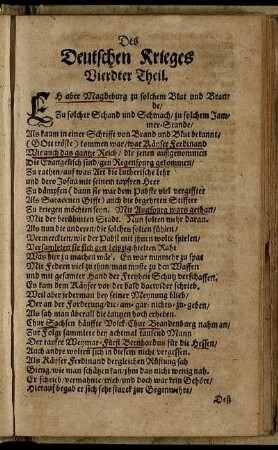 Des
Deutschen Krieges
Vierdter Theil.
EH aber Magdeburg zu solchem Blut und Bran-
de/
Zu solcher Schand und Schmach/ zu solchem Jam-
mer-Stande/
Als kaum in einer Schrifft von Brand und Blut bekannt/
(GOtt tröste) kommen war/ war Käyser Ferdinand
Wie auch das gantze Reich/ die jenen außgenommen
Die Evangelisch sind/ gen Regenspurg gekommen/
Zu rathen/ auf was Art die Lutherische Lehr
und dero Josua mit seinen tapffren Heer
Zu dämpffen (dann sie war dem Pabste viel vergiffter
Als Saracenen Gifft) auch die begehrten Stiffter
Zu kriegen möchten seyn. Mit Augspurg wars gethan/
Mit der berühmten Stadt. Nun solten mehr daran.
Als nun die anderen/ die solches solten fühlen/
Vermerckten/ wie der Pabst mit ihnen wolte spielen/
Versamleten sie sich/ gen Leipzig hielten Raht
Was hier zu machen wär'. Es war nunmehr zu spat
Mit Federn viel zu thun/ man muste zu den Waffen
und mit gesamter Hand der Freyheit Schutz verschaffen.
Es kam dem Käyser vor/ der bald darwider schrieb/
Weil aber jederman bey seiner Meynung blieb/
Der an der Forderung/ die uns gar nichts zu geben/
Als sah man überall die langen hoch erheben.
Chur Sachsen häuffte Volck/ Chur Brandenburg nahm an/
Zur Folge sammlete bey achtmal tausend Mann
Der tapfre Weymar-Fürst Bernhardus für die Hessen/
Auch andre wolten sich in diesem nicht vergessen.
Als Käyser Ferdinand dergleichen Rüstung sah
Gieng/ wie man schätzen kan/ ihm das nicht wenig nah.
Er schrieb/ vermahnte/ rieth/ und doch war kein Gehör/
Hierauf begab er sich sehr starck zur Gegenwehre/
Deß